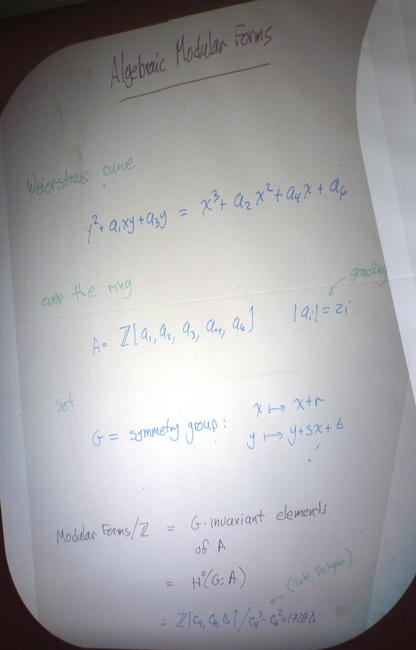 Algebraic Modular Forms
Weierstrass curve
y²+a₁xy+a₃y = x³+ a₂x²+a₄x+a₆
over the ring
grading
A= ℤ[a₁, a₂, a₃, a₄, a₆] |aᵢ|=2i
Set
G = symmetry group: x ↦ x+r
y ↦ y+sx+t
Modular Forms/ℤ = G-invariant elements
of A
= H⁰(G;A)
(Tate, Deligne)
= ℤ[c₄, c₆, Δ]/c₄³-c₆²=1728Δ